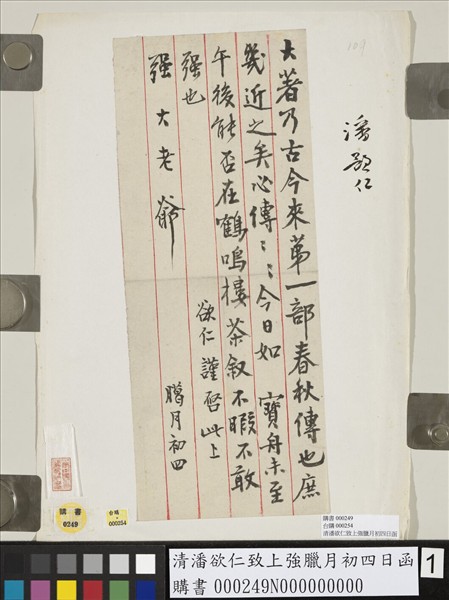 大著乃古今來第一部春秋傳也庶
幾近之矣必傳〻〻今日如 寶舟未至
午後能否在鶴鳴樓茶叙不暇不敢
强也
欲仁謹啓此上
强大老爺
臘月初四
潘欲仁
購書
0249
台購
000254
購書 000249
台購 000254
清潘欲仁致上強臘月初四日函
清潘欲仁致上強臘月初四日函
購書 000249N000000000
1